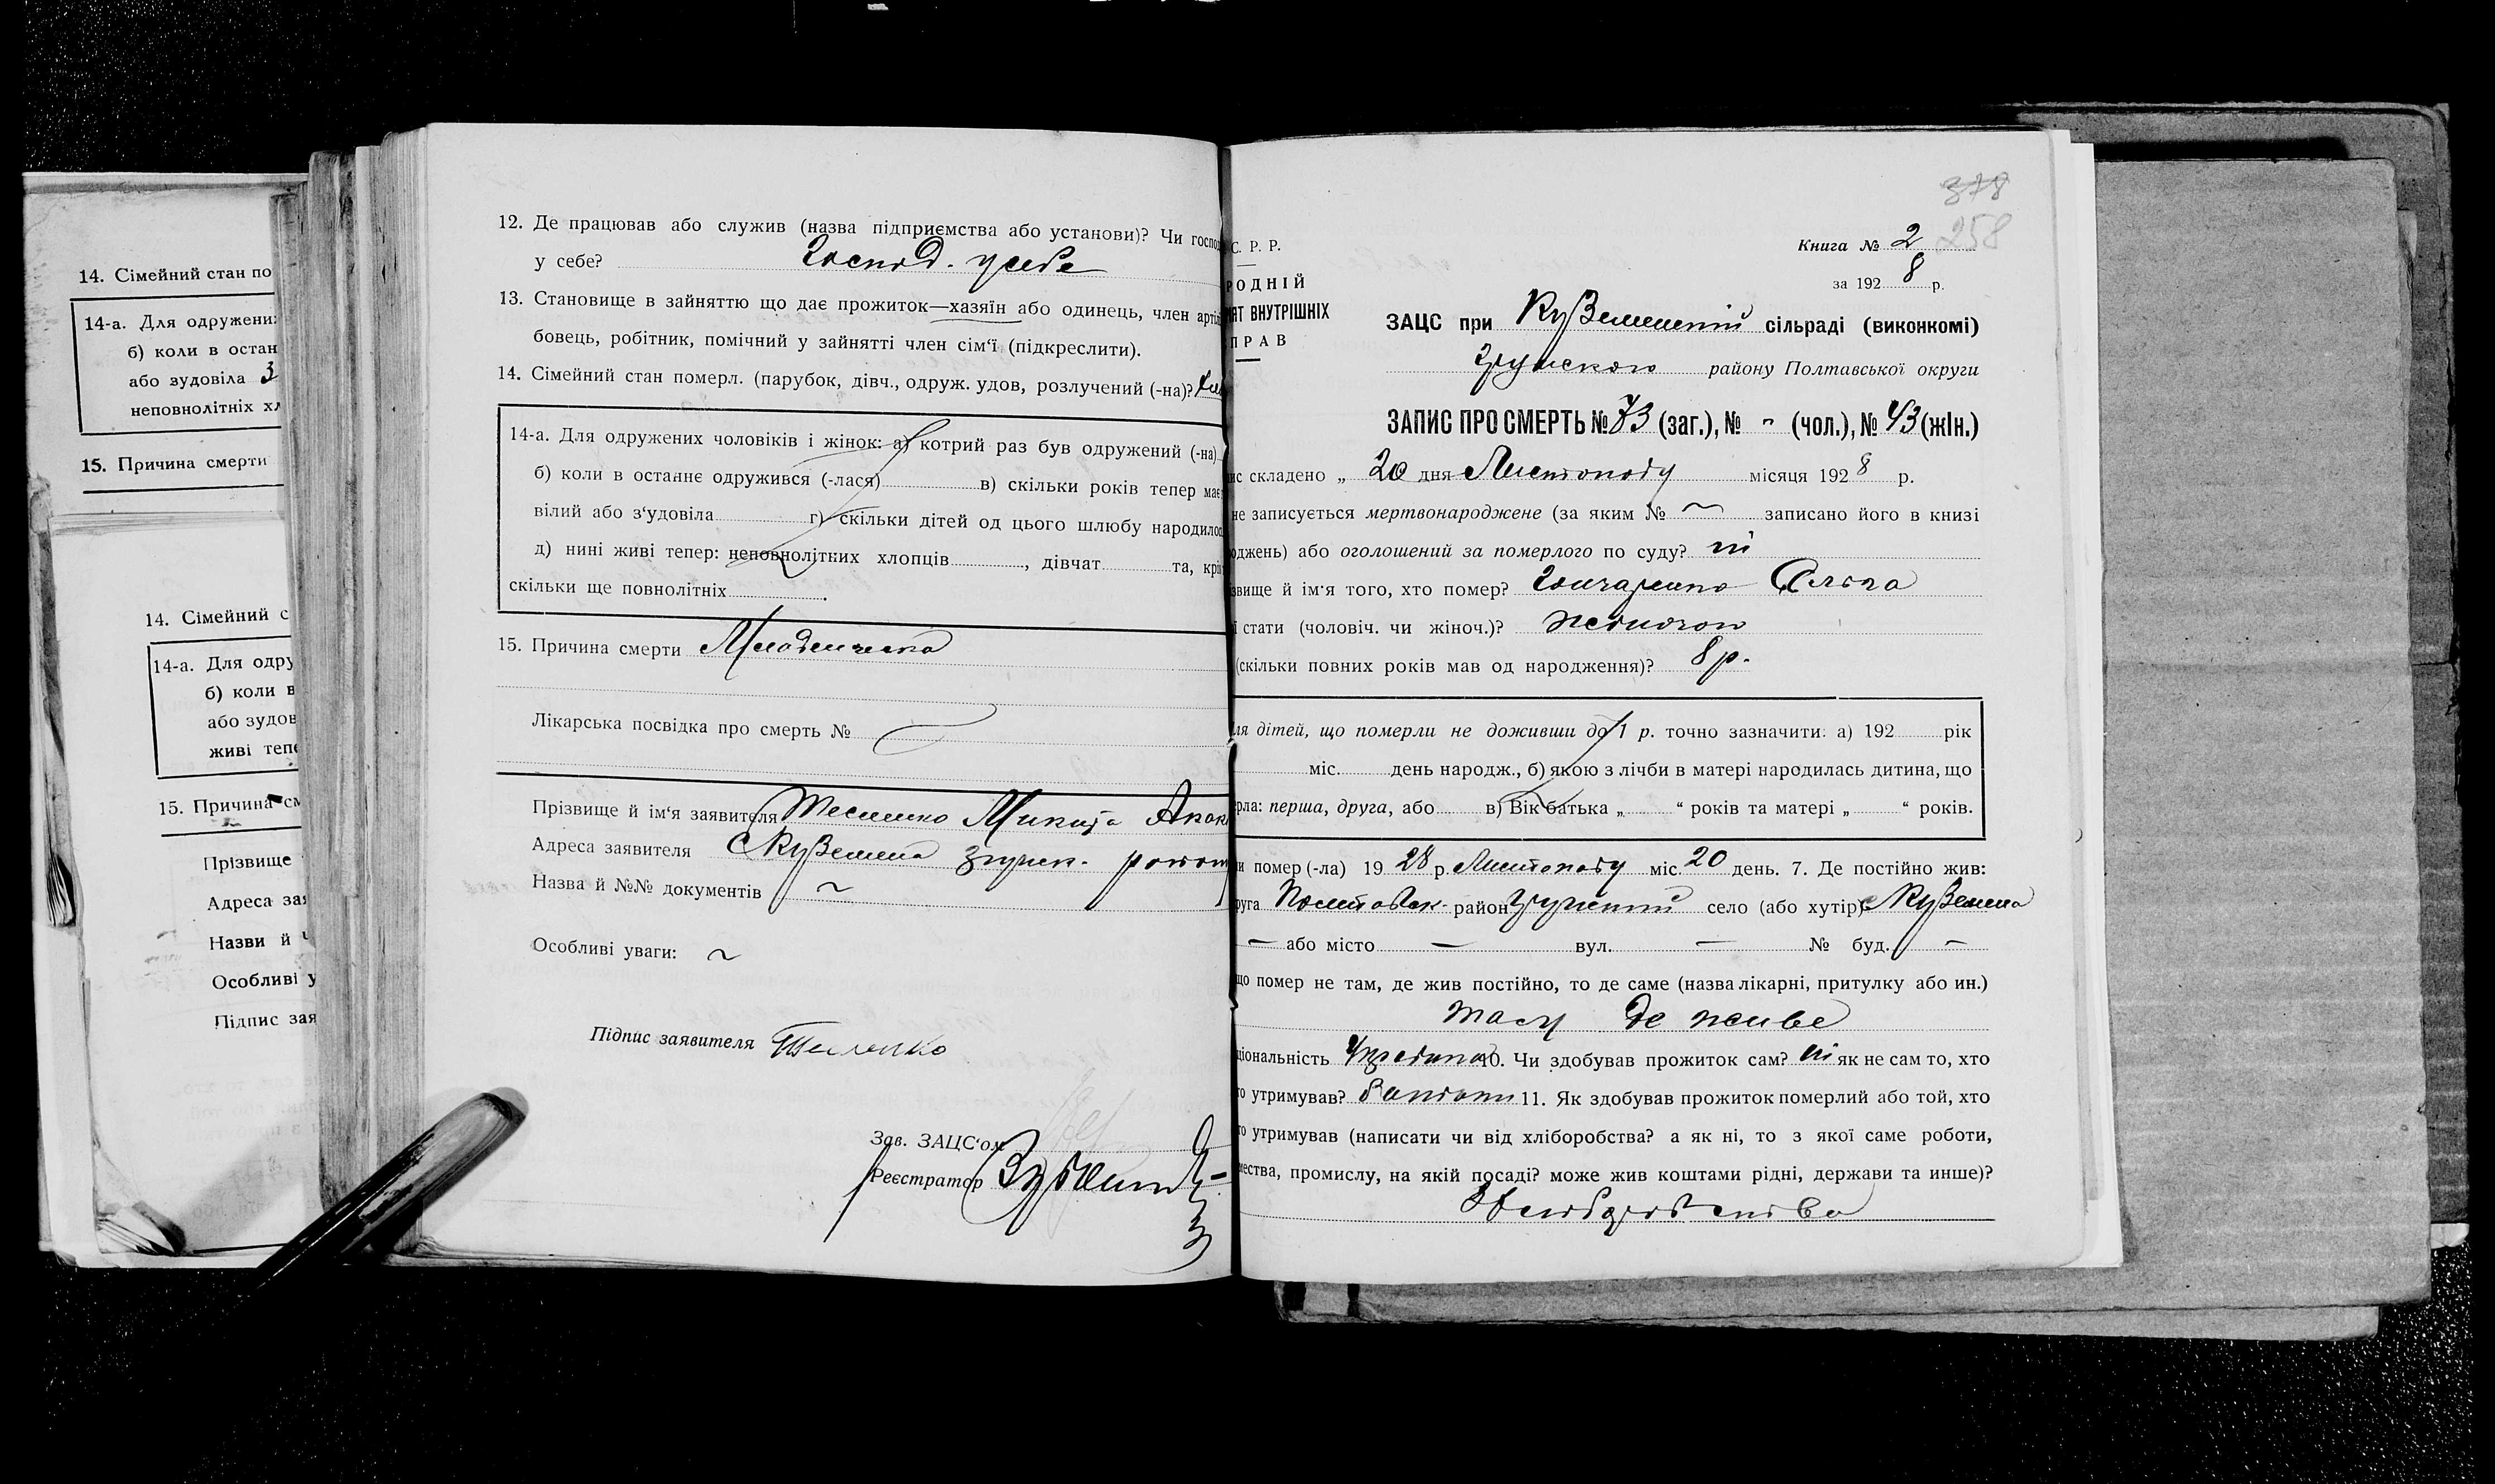 14. Сімейний стан по
14-а. Для одружени
б) коли в остан
або зудовіла 3
неповнолітніх хл
15. Причина смерти
14. Сімейний с
14-а. Для одру
б) коли в
або зудов
живі тепе
15. Причина см
Прізвище
Адреса зая
Назви й
Особливі у
Підпис зая
12. Де працював або служив (назва підприємства або установи)? Чи господ
у себе? Господ. у себе
13. Становище в зайняттю що дає прожиток—хазяїн або одинець, член артіл
бовець, робітник, помічний у зайнятті член сім'ї (підкреслити).
14. Сімейний стан померл. (парубок, дівч., одруж. удов, розлучений (-на)?
14-а. Для одружених чоловіків і жінок: а) котрий раз був одружений (-на)
б) коли в останнє одружився (-лася) в) скільки років тепер має
вілий або з'удовіла г) скільки дітей од цього шлюбу народилос
д) нині живі тепер: неповнолітких хлопців , дівчат та, крі
скільки ще повнолітніх .
15. Причина смерти Младенческа
Лікарська посвідка про смерть №
Прізвище й ім'я заявителя Тесленко Микита
Адреса заявителя с Куземена Грунск. району
Назва й №№ документів ~
Особливі уваги: ~
Підпис заявителя Тесленко
Зав. ЗАЦС'ом
Реєстратор
378
258
Книга № 2
за 192 8 р.
С. Р. Р.
РОДНІЙ
ЯТ ВНУТРІШНІХ
ПРАВ
ЗАЦС при Куземенській сільраді (виконкомі)
Грунского району Полтавської округи
ЗАПИС ПРО СМЕРТЬ № 73 (заг.), № - (чол.), № 43 (жІн.)
ис складено „ 20 дня Листопаду місяця 192 8 р.
не записується мертвонароджене (за яким № ~ записано його в книзі
оджень) або оголошений за померлого по суду? ні
звище й ім'я того, хто помер? Гончаренко Ольга
ї стати (чоловіч. чи жіноч.)? жіночої
(скільки повних років мав од народження)? 8 р.
ля дітей, що померли не доживши до 1 р. точно зазначити: а) 192 рік
міс. день народж., б) якою з лічби в матері народилась дитина, що
ерла: перша, друга, або в) Вік батька „ “ років та матері „ “ років.
и помер (-ла) 19 28 р. Листопаду міс. 20 день. 7. Де постійно жив:
руга Полтавск. район Грунський село (або хутір) с Куземена
— або місто — вул. — № буд. —
що помер не там, де жив постійно, то де саме (назва лікарні, притулку або ин.)
там де живе
ціональність Українка 10. Чи здобував прожиток сам? ні як не сам то, хто
го утримував? батьки 11. Як здобував прожиток померлий або той, хто
го утримував (написати чи від хліборобства? а як ні, то з якої саме роботи,
мества, промислу, на якій посаді? може жив коштами рідні, держави та инше)?
Хліборобства